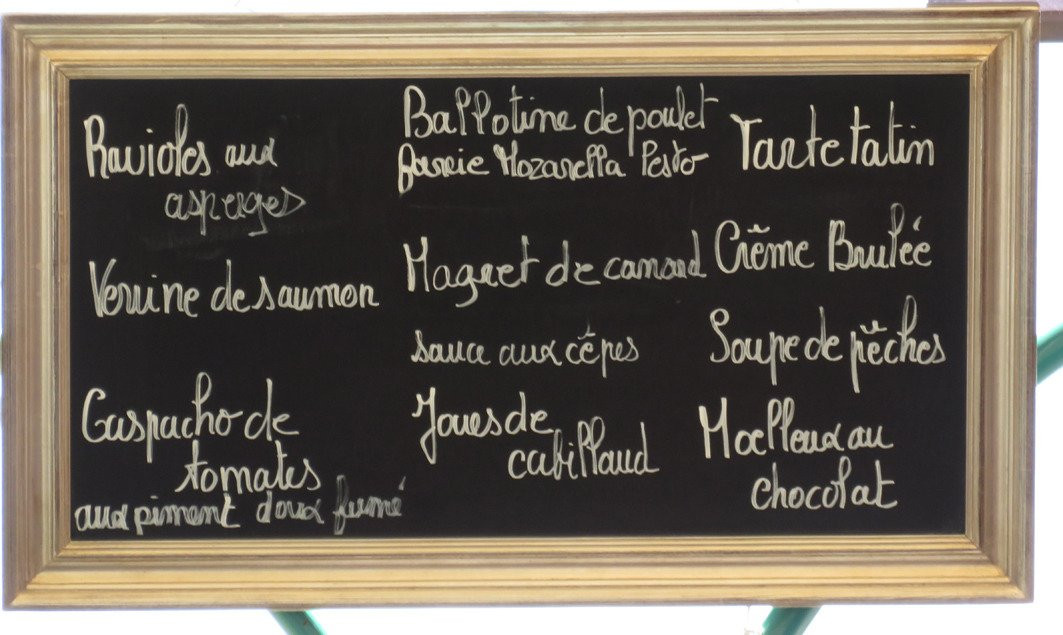 Ravioles aux
asperges
Verrine de saumon
Gaspacho de
tomates
aux piment doux fumé
Ballotine de poulet
farcie Mozarella Pesto
Magret de canard
sauce aux cêpes
Joues de
cabillaud
Tarte tatin
Crême Brulée
Soupe de pêches
Moelleux au
chocolat